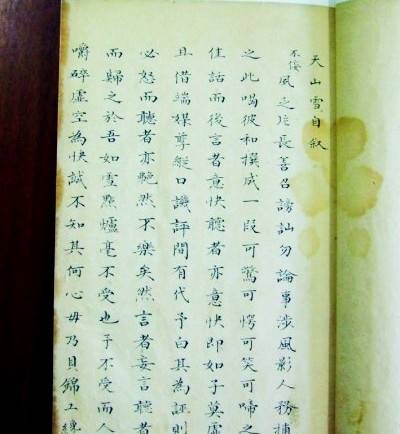 天山雪自叙
不佞夙乏片長善召謗訕勿論事涉風影人務捕
之此喝彼和撰成一段可驚可愕可笑可啼之
佳話而後言者意快聽者亦意快即如子莫虛
且借端媒孽縱口譏評間有代予白其為誣則
必怒而聽者亦艴然不樂矣然言者妄言聽者
而歸之於吾如雪點爐毫不受也予不受而人
嚼碎虛空為快誠不知其何心毋乃貝錦工